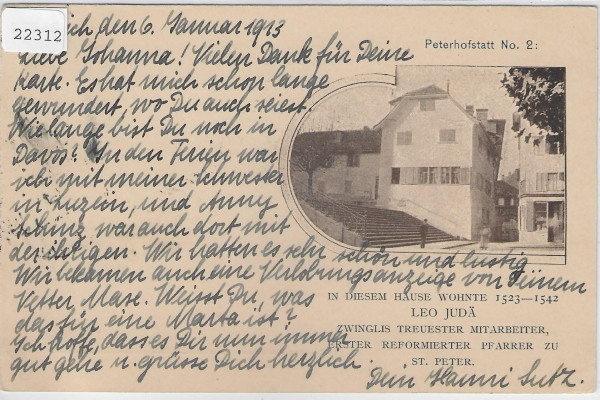 22312
Peterhofstatt No. 2:
den 6. Januar 1913
Liebe Johanna! Vielen Dank für Deine
Karte. Es hat mich schon lange
gewundert, wo Du auch seiest.
Wie lange bist Du noch in
Davos? In den Ferien war
ich mit meiner Schwester
in Luzein, und Anny
war auch dort mit
der ihrigen. Wir hatten es sehr schön und lustig
Wir bekamen auch eine Verlobungsanzeige von Deinem
Vetter Max. Weisst Du, was
das für eine Marta ist?
Ich hoffe, dass es Dir nun immer
gut gehe u. grüsse Dich herzlich.
Dein Hanni Lutz.
IN DIESEM HAUSE WOHNTE 1523—1542
LEO JUDÄ
ZWINGLIS TREUESTER MITARBEITER,
ERSTER REFORMIERTER PFARRER ZU
ST. PETER.